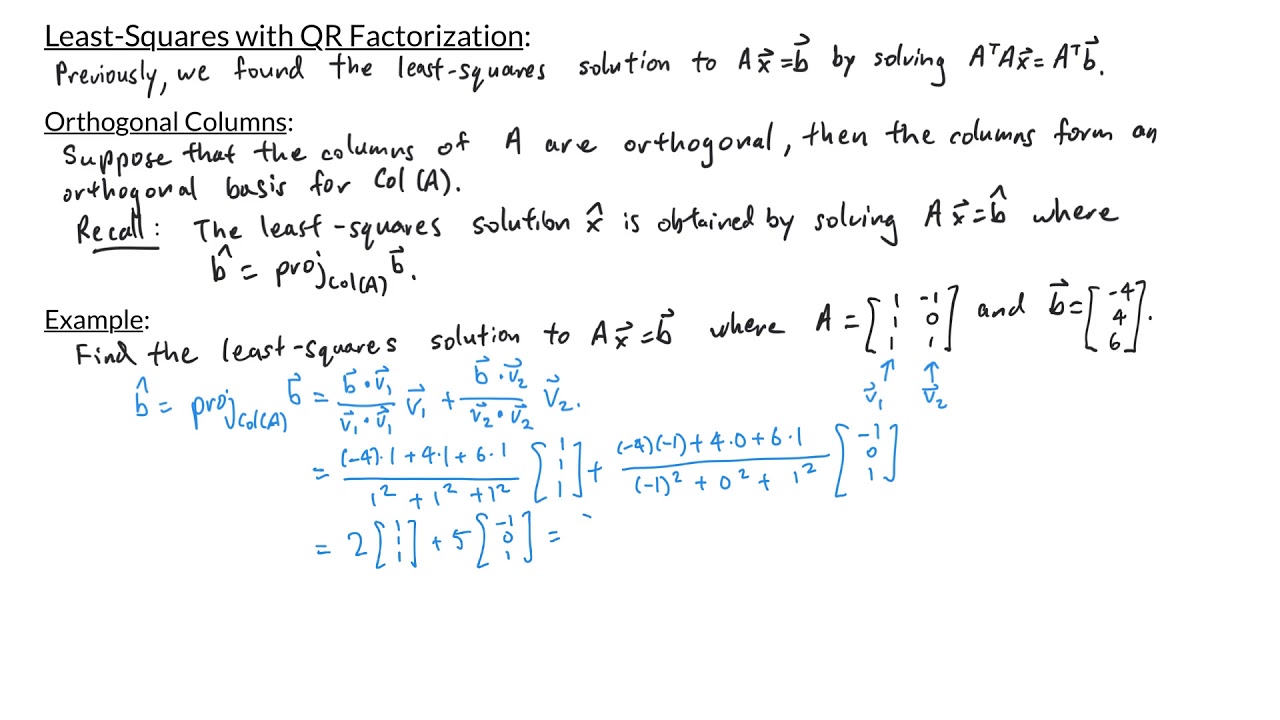 Least-Squares with QR Factorization:
Previously, we found the least-squares solution to A x⃗ = b⃗ by solving AᵀA x⃗ = Aᵀ b⃗.
Orthogonal Columns:
Suppose that the columns of A are orthogonal, then the columns form an
orthogonal basis for Col(A).
Recall: The least-squares solution x̂ is obtained by solving A x⃗ = b̂ where
b̂ = proj_Col(A) b⃗.
Example:
Find the least-squares solution to A x⃗ = b⃗ where A = [1 -1; 1 0; 1 1] and b⃗ = [-4; 4; 6].
↑ v⃗₁ ↑ v⃗₂
b̂ = proj_Col(A) b⃗ = (b⃗ · v⃗₁)/(v⃗₁ · v⃗₁) v⃗₁ + (b⃗ · v⃗₂)/(v⃗₂ · v⃗₂) v⃗₂.
= ((-4)·1 + 4·1 + 6·1)/(1² + 1² + 1²) [1; 1; 1] + ((-4)(-1) + 4·0 + 6·1)/((-1)² + 0² + 1²) [-1; 0; 1]
= 2 [1; 1; 1] + 5 [-1; 0; 1] =